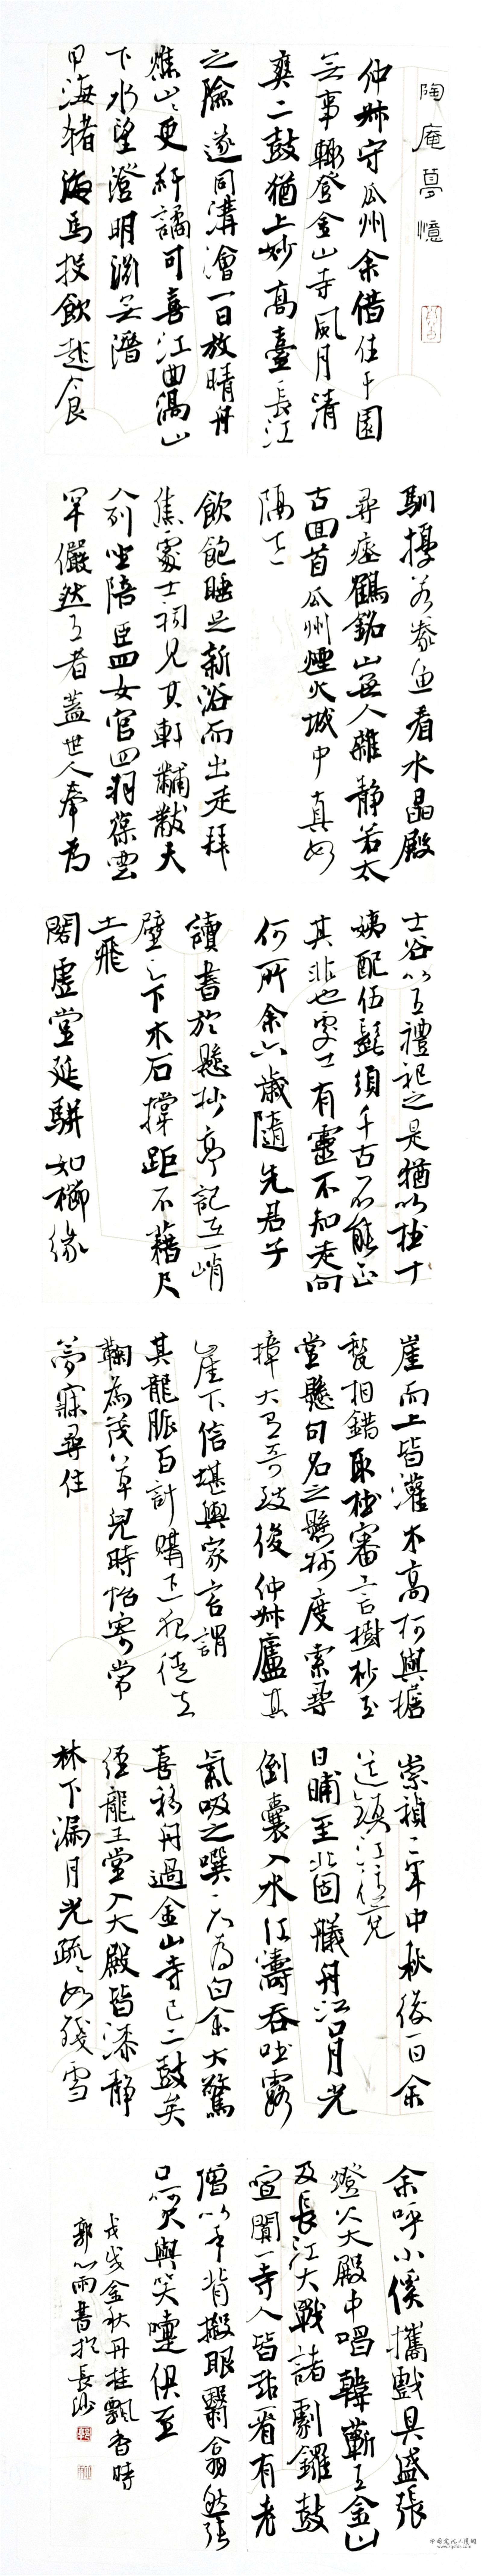 陶庵夢憶
仲叔守瓜州余借住于園
無事輒登金山寺風月清
爽二鼓猶上妙高臺長江
之險遂同溝澮一日放晴舟
焦山山更紆譎可喜江曲渦山
下水望澄明淵無潛
甲海猪海馬投飲起食
馴擾若豢魚看水晶殿
尋瘞鶴銘山無人雜靜若太
古回首瓜州煙火城中真如
隔世
飲飽睡足新浴而出走拜
焦處士祠見其軒黼黻夫
人列坐陪臣四女官四羽葆雲
罕儼然王者蓋世人奉為
土谷以王禮祀之是猶以杜十
姨配伍髭須千古不能正
其非也處士有靈不知走向
何所余六歲隨先君子
讀書於懸杪亭記在一峭
壁之下木石撐距不藉尺
土飛
閣虛堂延駢如櫛緣
崖而上皆灌木高柯與檐
甃相錯取杜審言樹杪玉
堂懸句名之懸杪度索尋
樟大有奇致後仲叔廬其
崖下信堪輿家言謂
其龍脈百計購之徙去
鞠為茂草兒時怡寄常
夢寐尋往
崇禎二年中秋後一日余
道鎮江往兗
日晡至北固艤舟江口月光
倒囊入水江濤吞吐露
氣吸之噀天為白余大驚
喜移舟過金山寺已二鼓矣
經龍王堂入大殿皆漆靜
林下漏月光疏疏如殘雪
余呼小傒攜戲具盛張
燈火大殿中唱韓蘄王金山
及長江大戰諸劇鑼鼓
喧闐一寺人皆起看有老
僧以手背搬眼翳翕然張
口呵欠與笑嚏俱至
戊戌金秋丹桂飄香時
郭心雨書於長沙
中国书法人陵网
www.zgshfa.com